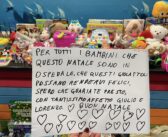 PER TUTTI I BAMBINI CHE
QUESTO NATALE SONO IN
OSPEDALE, CHE QUESTI GIOCATTOLI
POSSANO RENDERVI FELICI,
SPERO CHE GUARIATE PRESTO,
CON TANTISSIMO AFFETTO GIULIO E
LORENZO BUON NATALE